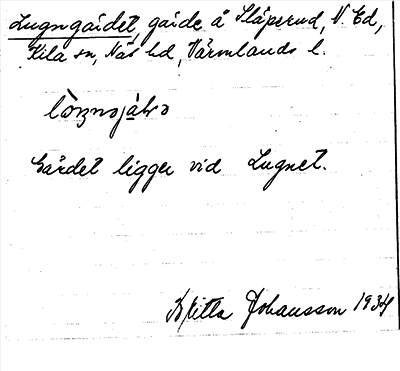 Lugngärdet, gärde å Släperud, N. Ed,
Kila sn, Näs hd, Värmlands l.
Gärdet ligger vid Lugnet.
Britta Johansson 1934